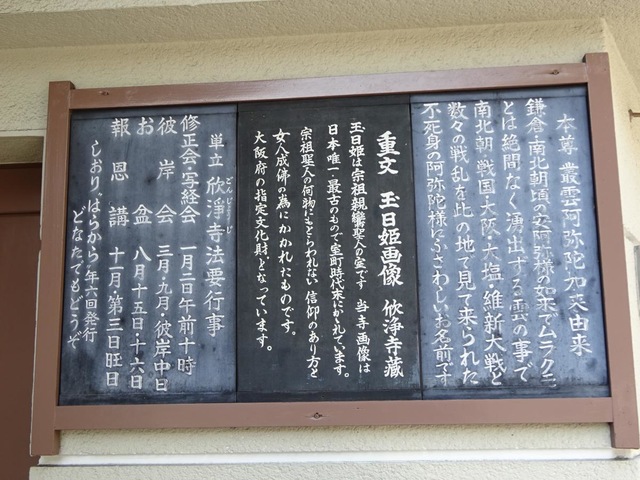 本尊 叢雲阿弥陀如来由来
鎌倉・南北朝頃の安阿弥様の如来でムラクモ
とは絶間なく湧出する雲の事で
南北朝・戦国・大阪・大塩・維新・大戦と
数々の戦乱を此の地で見て来られた
不死身の阿弥陀様にふさわしいお名前です
重文 玉日姫画像 欣浄寺蔵
玉日姫は宗祖親鸞聖人の室です 当寺画像は
日本唯一最古のもので室町時代末にかかれています。
宗祖聖人の何物にもとらわれない信仰のあり方と
女人成佛の為にかかれたものです。
大阪府の指定文化財となっています。
単立 欣浄寺法要行事
ごんじょうじ
修正会・写経会 一月二日午前十時
彼岸会 三月・九月・彼岸中日
お盆 八月十五日・十六日
報恩講 十一月第三日旺日
しおり“はらから”年六回発行
どなたでもどうぞ